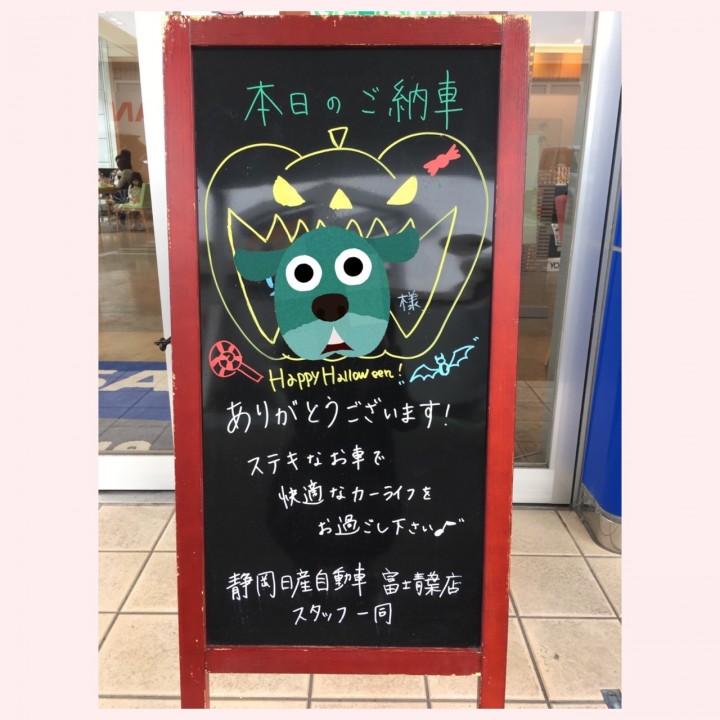 本日のご納車
様
Happy Halloween!
ありがとうございます!
ステキなお車で
快適なカーライフを
お過ごし下さい♪
静岡日産自動車 富士青葉店
スタッフ一同